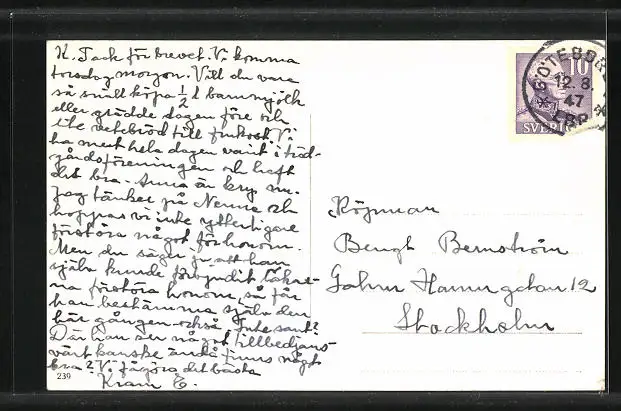 K. Tack för brevet. Vi komma
torsdag morgon. Vill du vara
så snäll köpa ½ l barnmjölk
eller grädde dagen före och
lite vetebröd till frukost. Vi
ha mest hela dagen varit i träd-
gårdsföreningen och haft
det bra. Anna är kry nu.
Jag tänker på Nenne och
hoppas vi inte ytterligare
förstöra något för honom.
Men du säger ju att han
själv kunde
förstöra honom, så får
han bestämma själv den
här gången också. Inte sant?
Där han ser något tillbedjans-
värt kanske ändå finns något
bra? Vi få göra det bästa
Kram E.
239
10
SVERIGE
GÖTEBORG
12.8.
47
LBR
Köpman
Bengt Bernström
Hamngatan 12
Stockholm